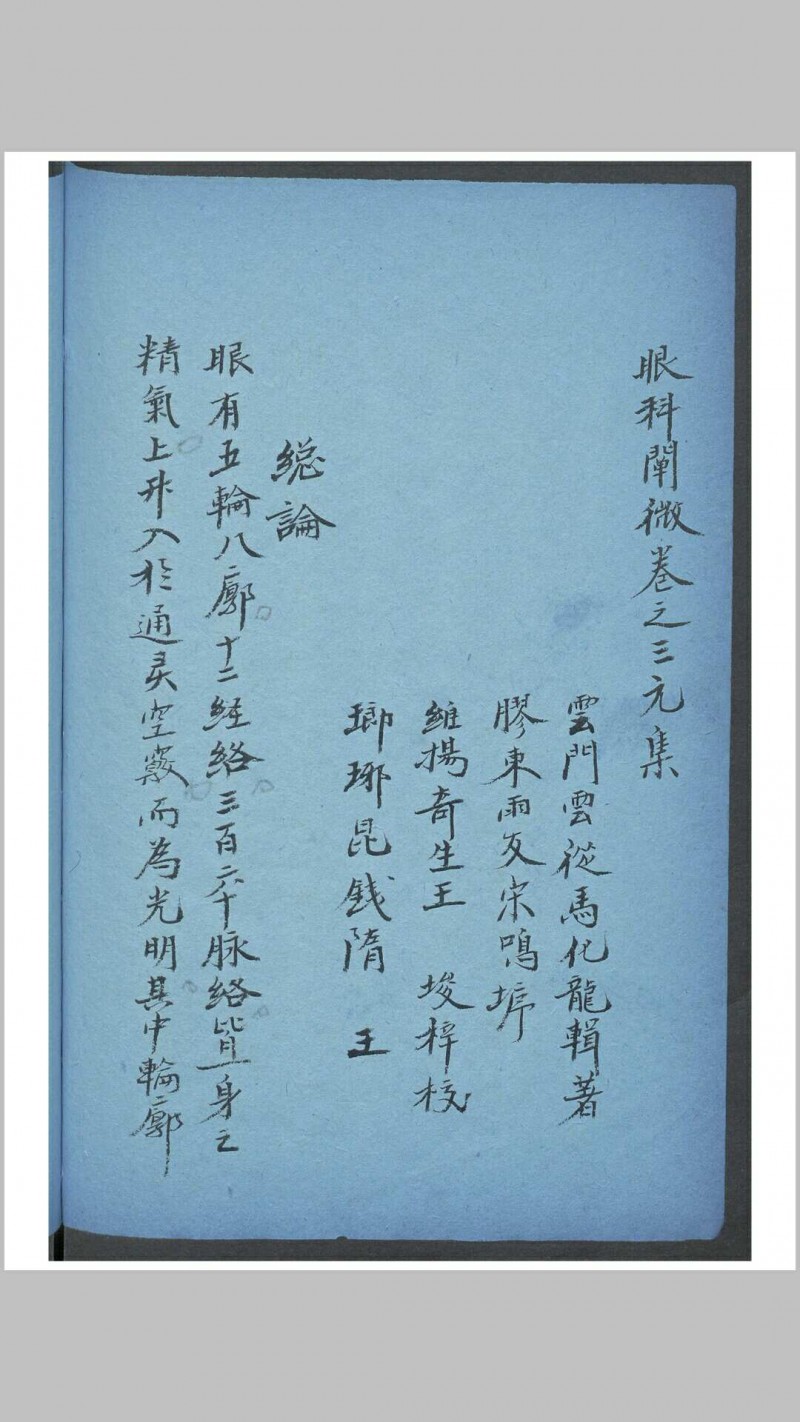 眼科闡微卷之三元集
雲門雲從馬化龍輯著
膠東雨友宋鳴埁
維揚奇生王 埈梓校
瑯琊昆銭隋 王
總論
眼有五輪八廓十二経絡三百六十脉絡皆一身之
精氣上升入於通灵空竅而為光明其中輪廓